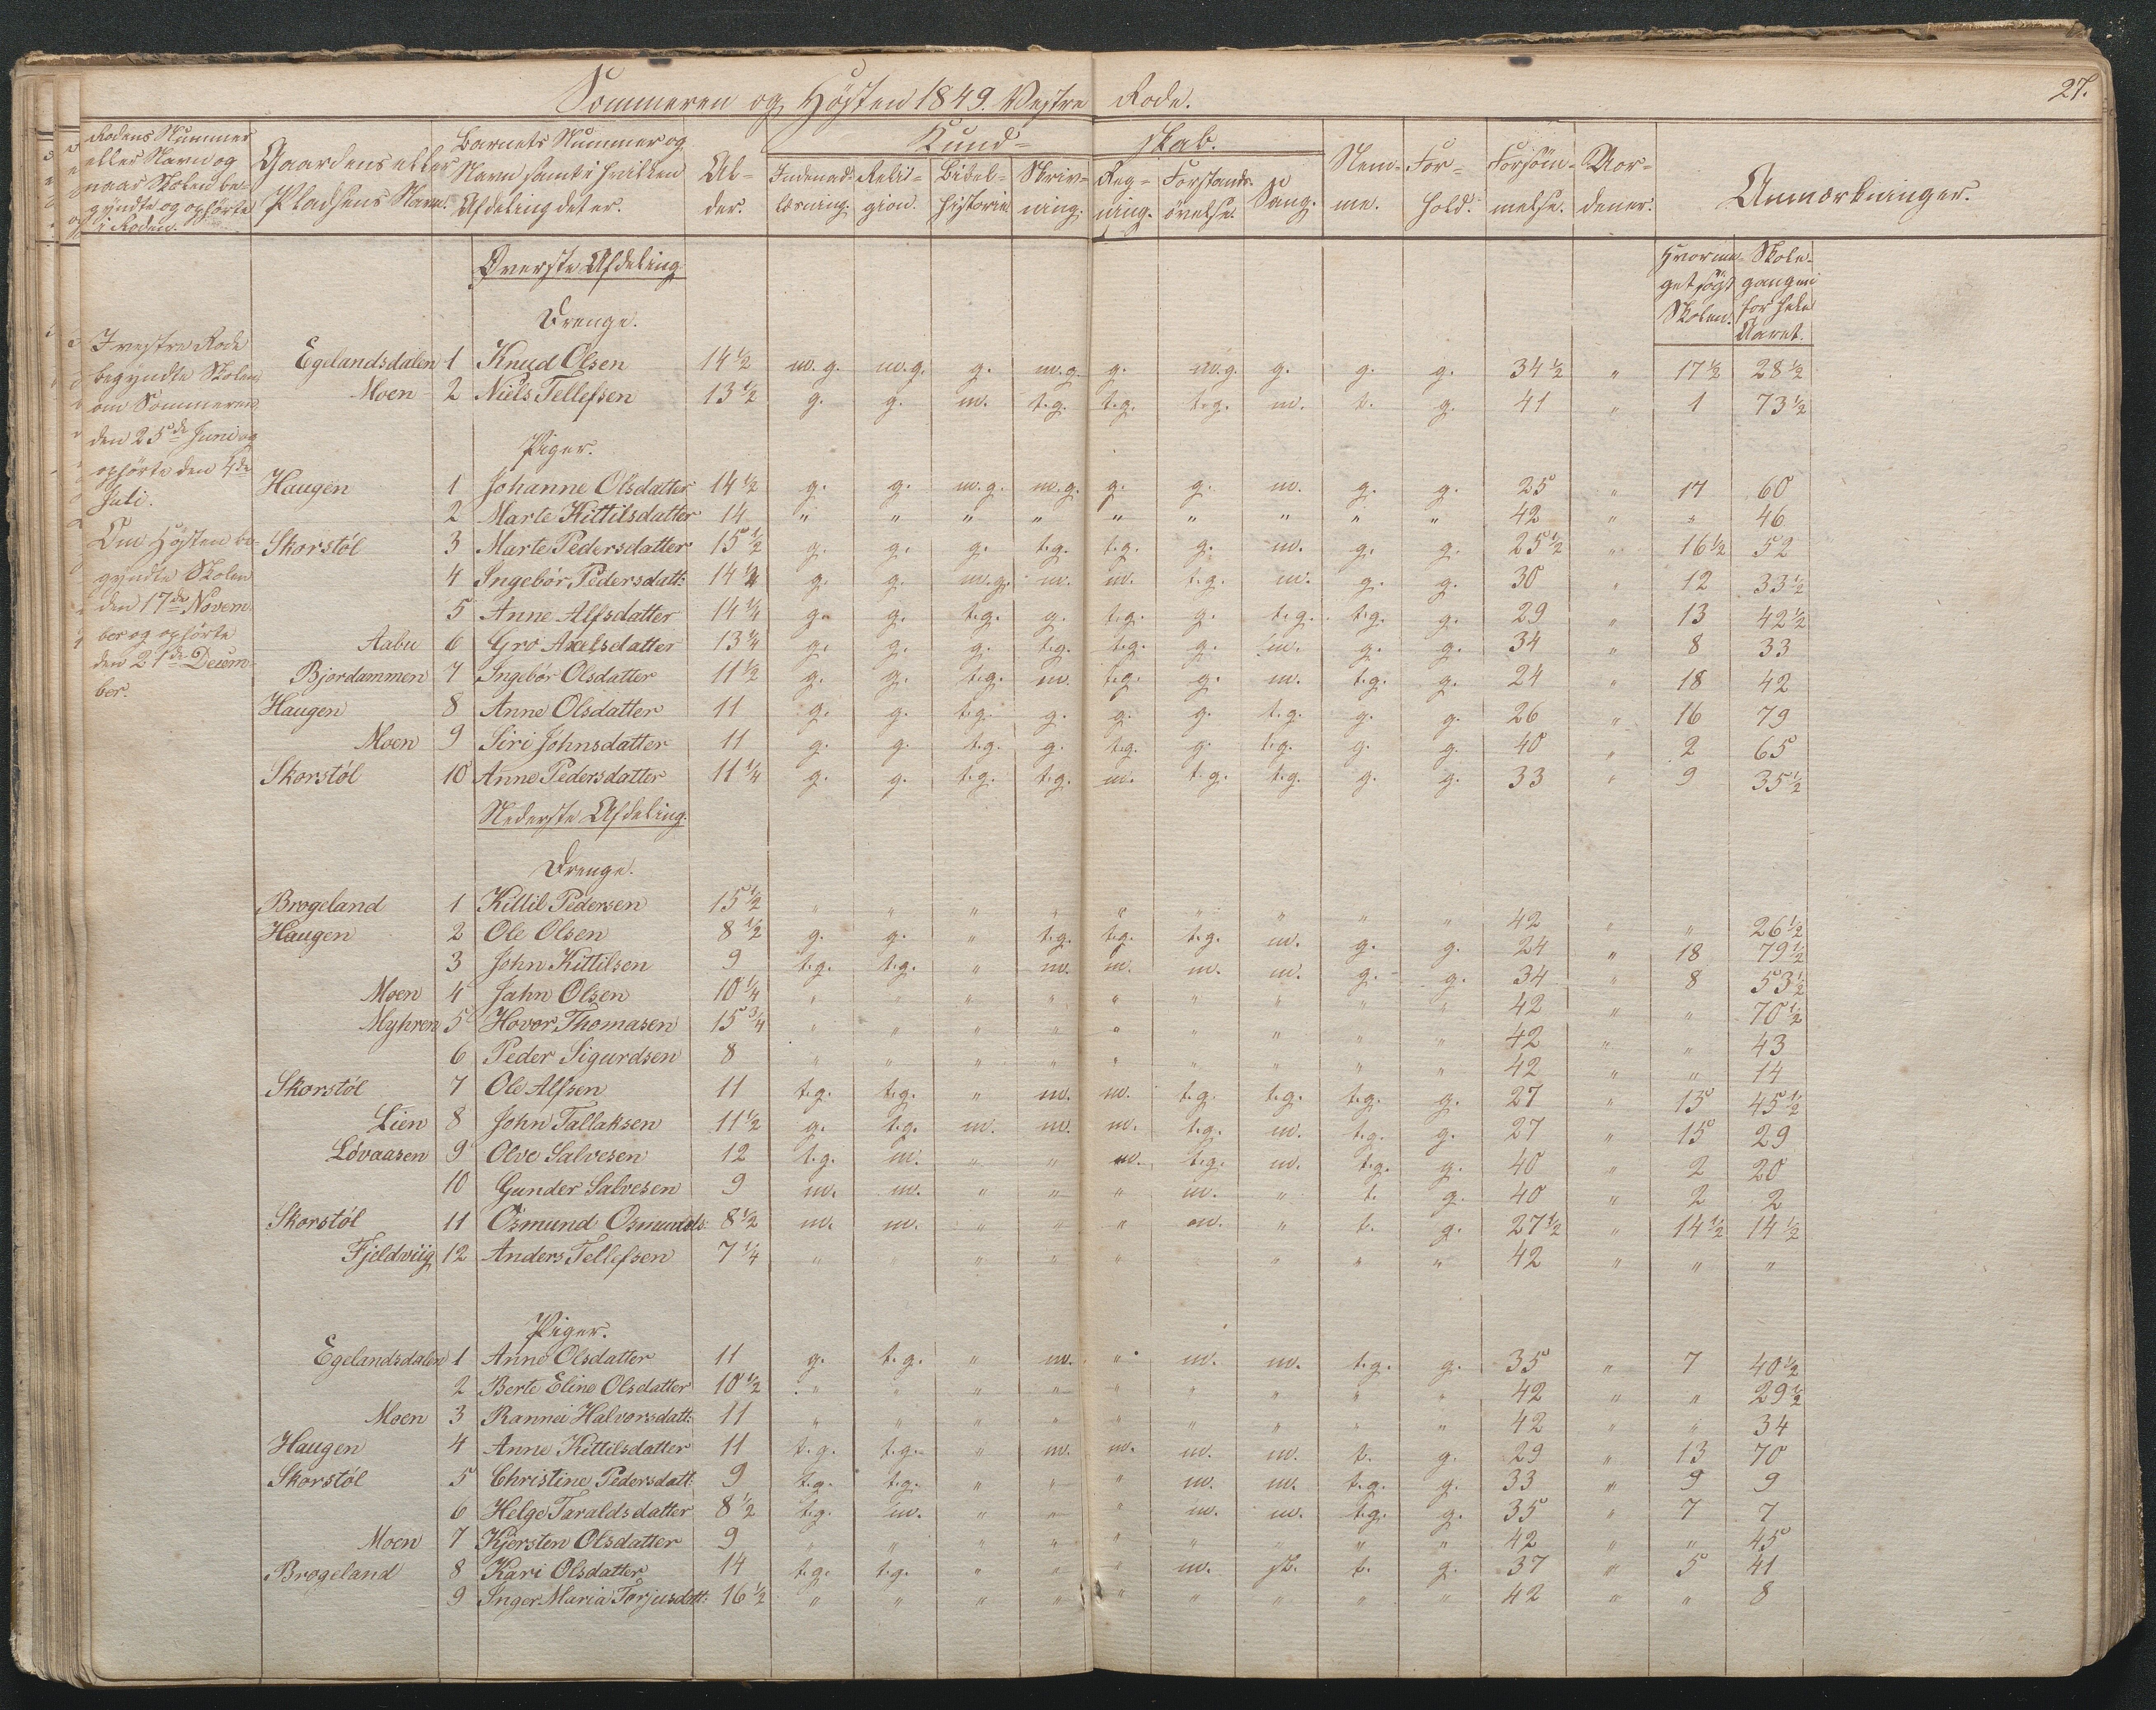 Sommeren og Høsten 1849. Vestre Rode.
27.
Rodens Nummer eller Navn og naar Skolen begyndte og ophørte i Roden.
Gaardens eller Pladsens Navn.
Barnets Nummer og Navn samt i hvilken Afdeling det er.
Alder.
Kundskab.
Indenadlæsning. Religion. Bibelhistorie Skrivning. Regning. Forstandsøvelse. Sang.
Nemme. Forhold. Forsømmelse. Noxdener. Anmærkninger.
Hvormeget søgt Skolen. Skolegangen i for hele Aaret.
I vestre Rode
begyndte Skolen
om Sommeren
den 25de Juni og
ophørte den 4de
Juli.
Om Høsten be-
gyndte Skolen
den 17de Novem-
ber og ophørte
den 21de Decem-
ber.
Øverste Afdeling
Drenge.
Egelandsdalen 1 Knud Olsen 14½ m.g. m.g. g. m.g. g. m.g. g. g. g. 34½ " 17½ 28½
Moen 2 Niels Tellefsen 13½ g. g. m. t.g. t.g. t.g. m. t. g. 41 " 1 73½
Piger.
Haugen 1 Johanne Olsdatter 14½ g. g. m.g. m.g. g. g. m. g. g. 25 " 17 60
2 Marte Kittilsdatter 14 " " " " " " " " " 42 " " 46
Skorstøl 3 Marte Pedersdatter 15½ g. g. g. t.g. t.g. g. m. g. g. 25½ " 16½ 52
4 Ingebør Pedersdatt: 14¼ g. g. m.g. m. m. t.g. m. g. g. 30 " 12 33½
5 Anne Alfsdatter 14¼ g. g. t.g. g. t.g. g. t.g. t.g. g. 29 " 13 42½
Aabu 6 Gro Axelsdatter 13¼ g. g. g. t.g. t.g. g. m. g. g. 34 " 8 33
Bjordammen 7 Ingebør Olsdatter 11½ g. g. t.g. m. t.g. g. m. t.g. g. 24 " 18 42
Haugen 8 Anne Olsdatter 11 g. g. t.g. g. g. g. t.g. g. g. 26 " 16 79
Moen 9 Siri Johnsdatter 11 g. g. t.g. g. t.g. g. t.g. g. g. 40 " 2 65
Skorstøl 10 Anne Pedersdatter 11¼ g. g. t.g. t.g. m. t.g. t.g. g. g. 33 " 9 35½
Nederste Afdeling.
Drenge.
Brogeland 1 Kittil Pedersen 15½ " " " " " " " " " 42 " " 26½
Haugen 2 Ole Olsen 8½ g. g. " t.g. t.g. t.g. m. g. g. 24 " 18 79½
3 John Kittilsen 9 t.g. t.g. " m. m. m. m. g. g. 34 " 8 53½
Moen 4 Jahn Olsen 10¼ " " " " " " " " " 42 " " 70½
Myhren 5 Hovor Thomasen 15¾ " " " " " " " " " 42 " " 43
6 Peder Sigurdsen 8 " " " " " " " " " 42 " " 14
Skorstøl 7 Ole Alfsen 11 t.g. t.g. " m. m. t.g. t.g. t.g. g. 27 " 15 45½
Lien 8 John Tallaksen 11½ g. t.g. m. m. m. t.g. m. t.g. g. 27 " 15 29
Løvaasen 9 Olve Salvesen 12 t.g. m. " " m. t.g. m. t.g. g. 40 " 2 20
10 Gunder Salvesen 9 m. m. " " " m. " t. g. 40 " 2 2
Skorstøl 11 Osmund Osmunds: 8½ m. m. " " " m. " t. g. 27½ " 14½ 14½
Fjeldviig 12 Anders Tellefsen 7¼ " " " " " " " " " 42 " " "
Piger.
Egelandsdalen 1 Anne Olsdatter 11 g. t.g. " m. " m. m. t.g. g. 35 " 7 40½
2 Berte Eline Olsdatter 10½ " " " " " " " " " 42 " " 29½
Moen 3 Rannei Halvorsdatt: 11 " " " " " " " " " 42 " " 34
Haugen 4 Anne Kittilsdatter 11 t.g. t.g. " m. m. m. m. t. g. 29 " 13 70
Skorstøl 5 Christine Pedersdatt: 9 t.g. t.g. " " " m. m. t.g. g. 33 " 9 9
6 Helge Taraldsdatter 8½ t.g. m. " " " m. m. t.g. g. 35 " 7 7
Moen 7 Kjersten Olsdatter 9 " " " " " " " " " 42 " " 45
Brogeland 8 Kari Olsdatter 14 t.g. t.g. " " " m. sl. t. g. 37 " 5 41
9 Inger Maria Torjusdatt: 16½ " " " " " " " " " 42 " " 8